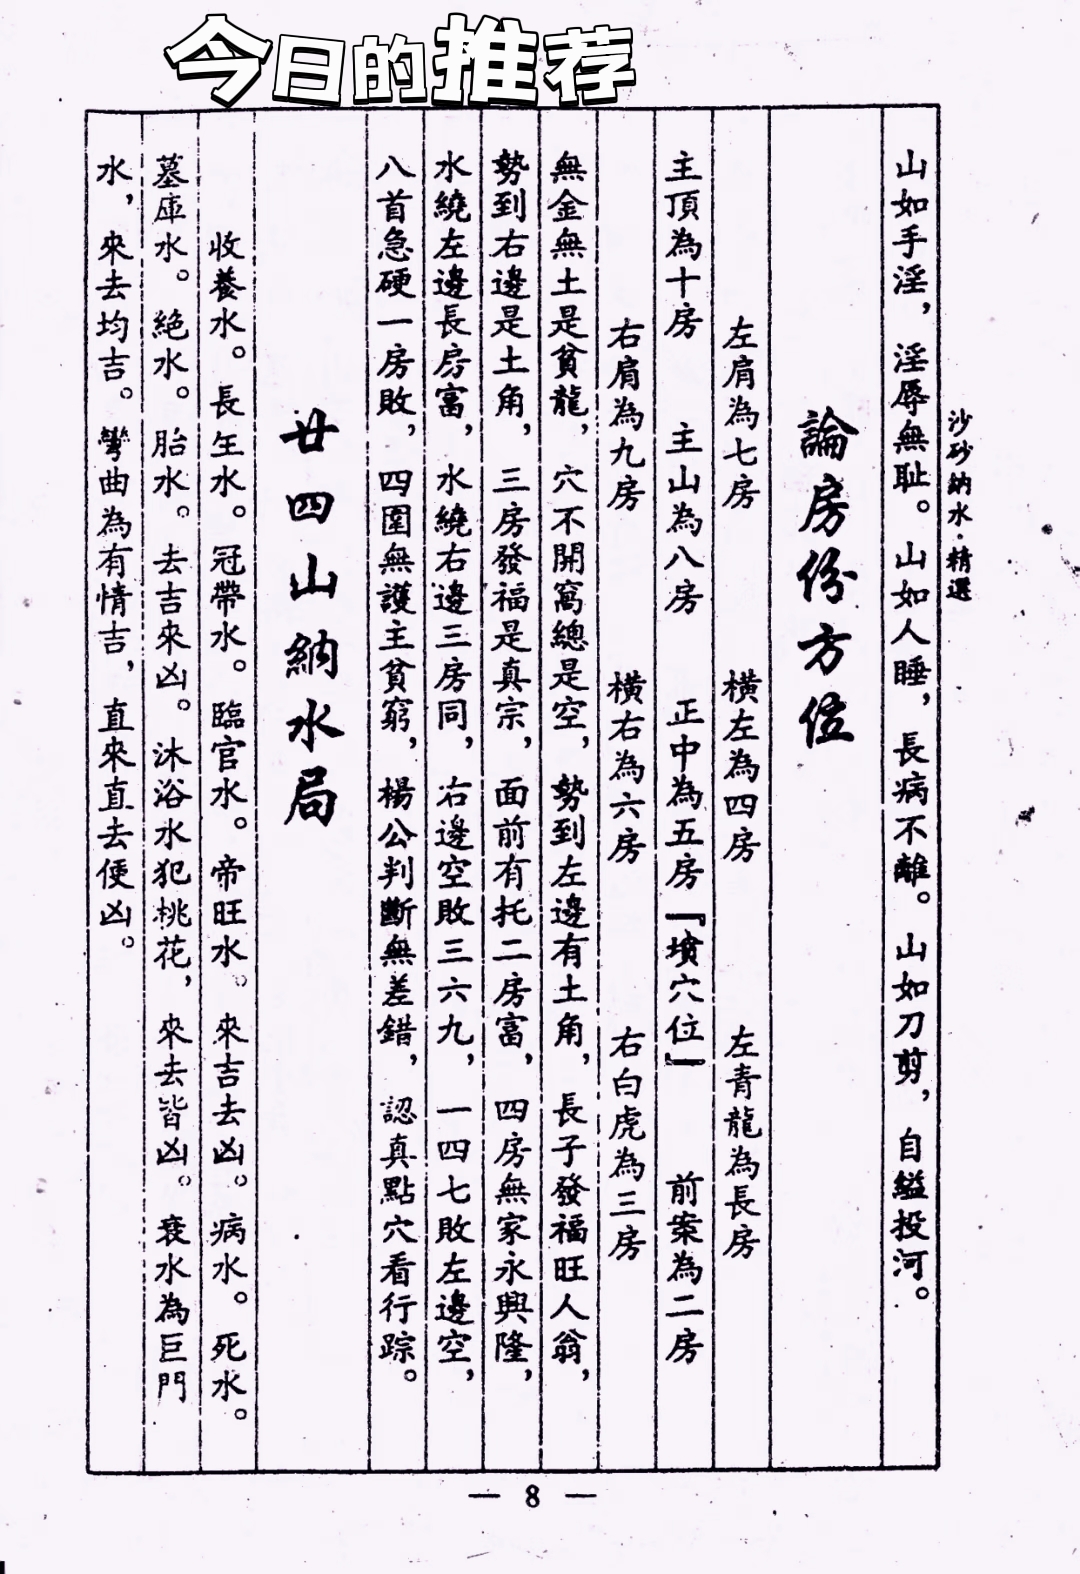 今日的推荐
沙砂納水·精選
山如手淫，淫辱無耻。山如人睡，長病不離。山如刀剪，自縊投河。
論房份方位
左肩為七房　橫左為四房　左青龍為長房
主頂為十房　主山為八房　正中為五房『墳穴位』　前案為二房
右肩為九房　橫右為六房　右白虎為三房
無金無土是貧龍，穴不開窩總是空，勢到左邊有土角，長子發福旺人翁，
勢到右邊是土角，三房發福是真宗，面前有托二房富，四房無家永興隆，
水繞左邊長房富，水繞右邊三房同，右邊空敗三六九，一四七敗左邊空，
八首急硬一房敗，四圍無護主貧窮，楊公判斷無差錯，認真點穴看行踪。
廿四山納水局
收養水。長生水。冠帶水。臨官水。帝旺水。來吉去凶。病水。死水。
墓庫水。絕水。胎水。去吉來凶。沐浴水犯桃花，來去皆凶。衰水為巨門
水，來去均吉。彎曲為有情吉，直來直去便凶。
— 8 —